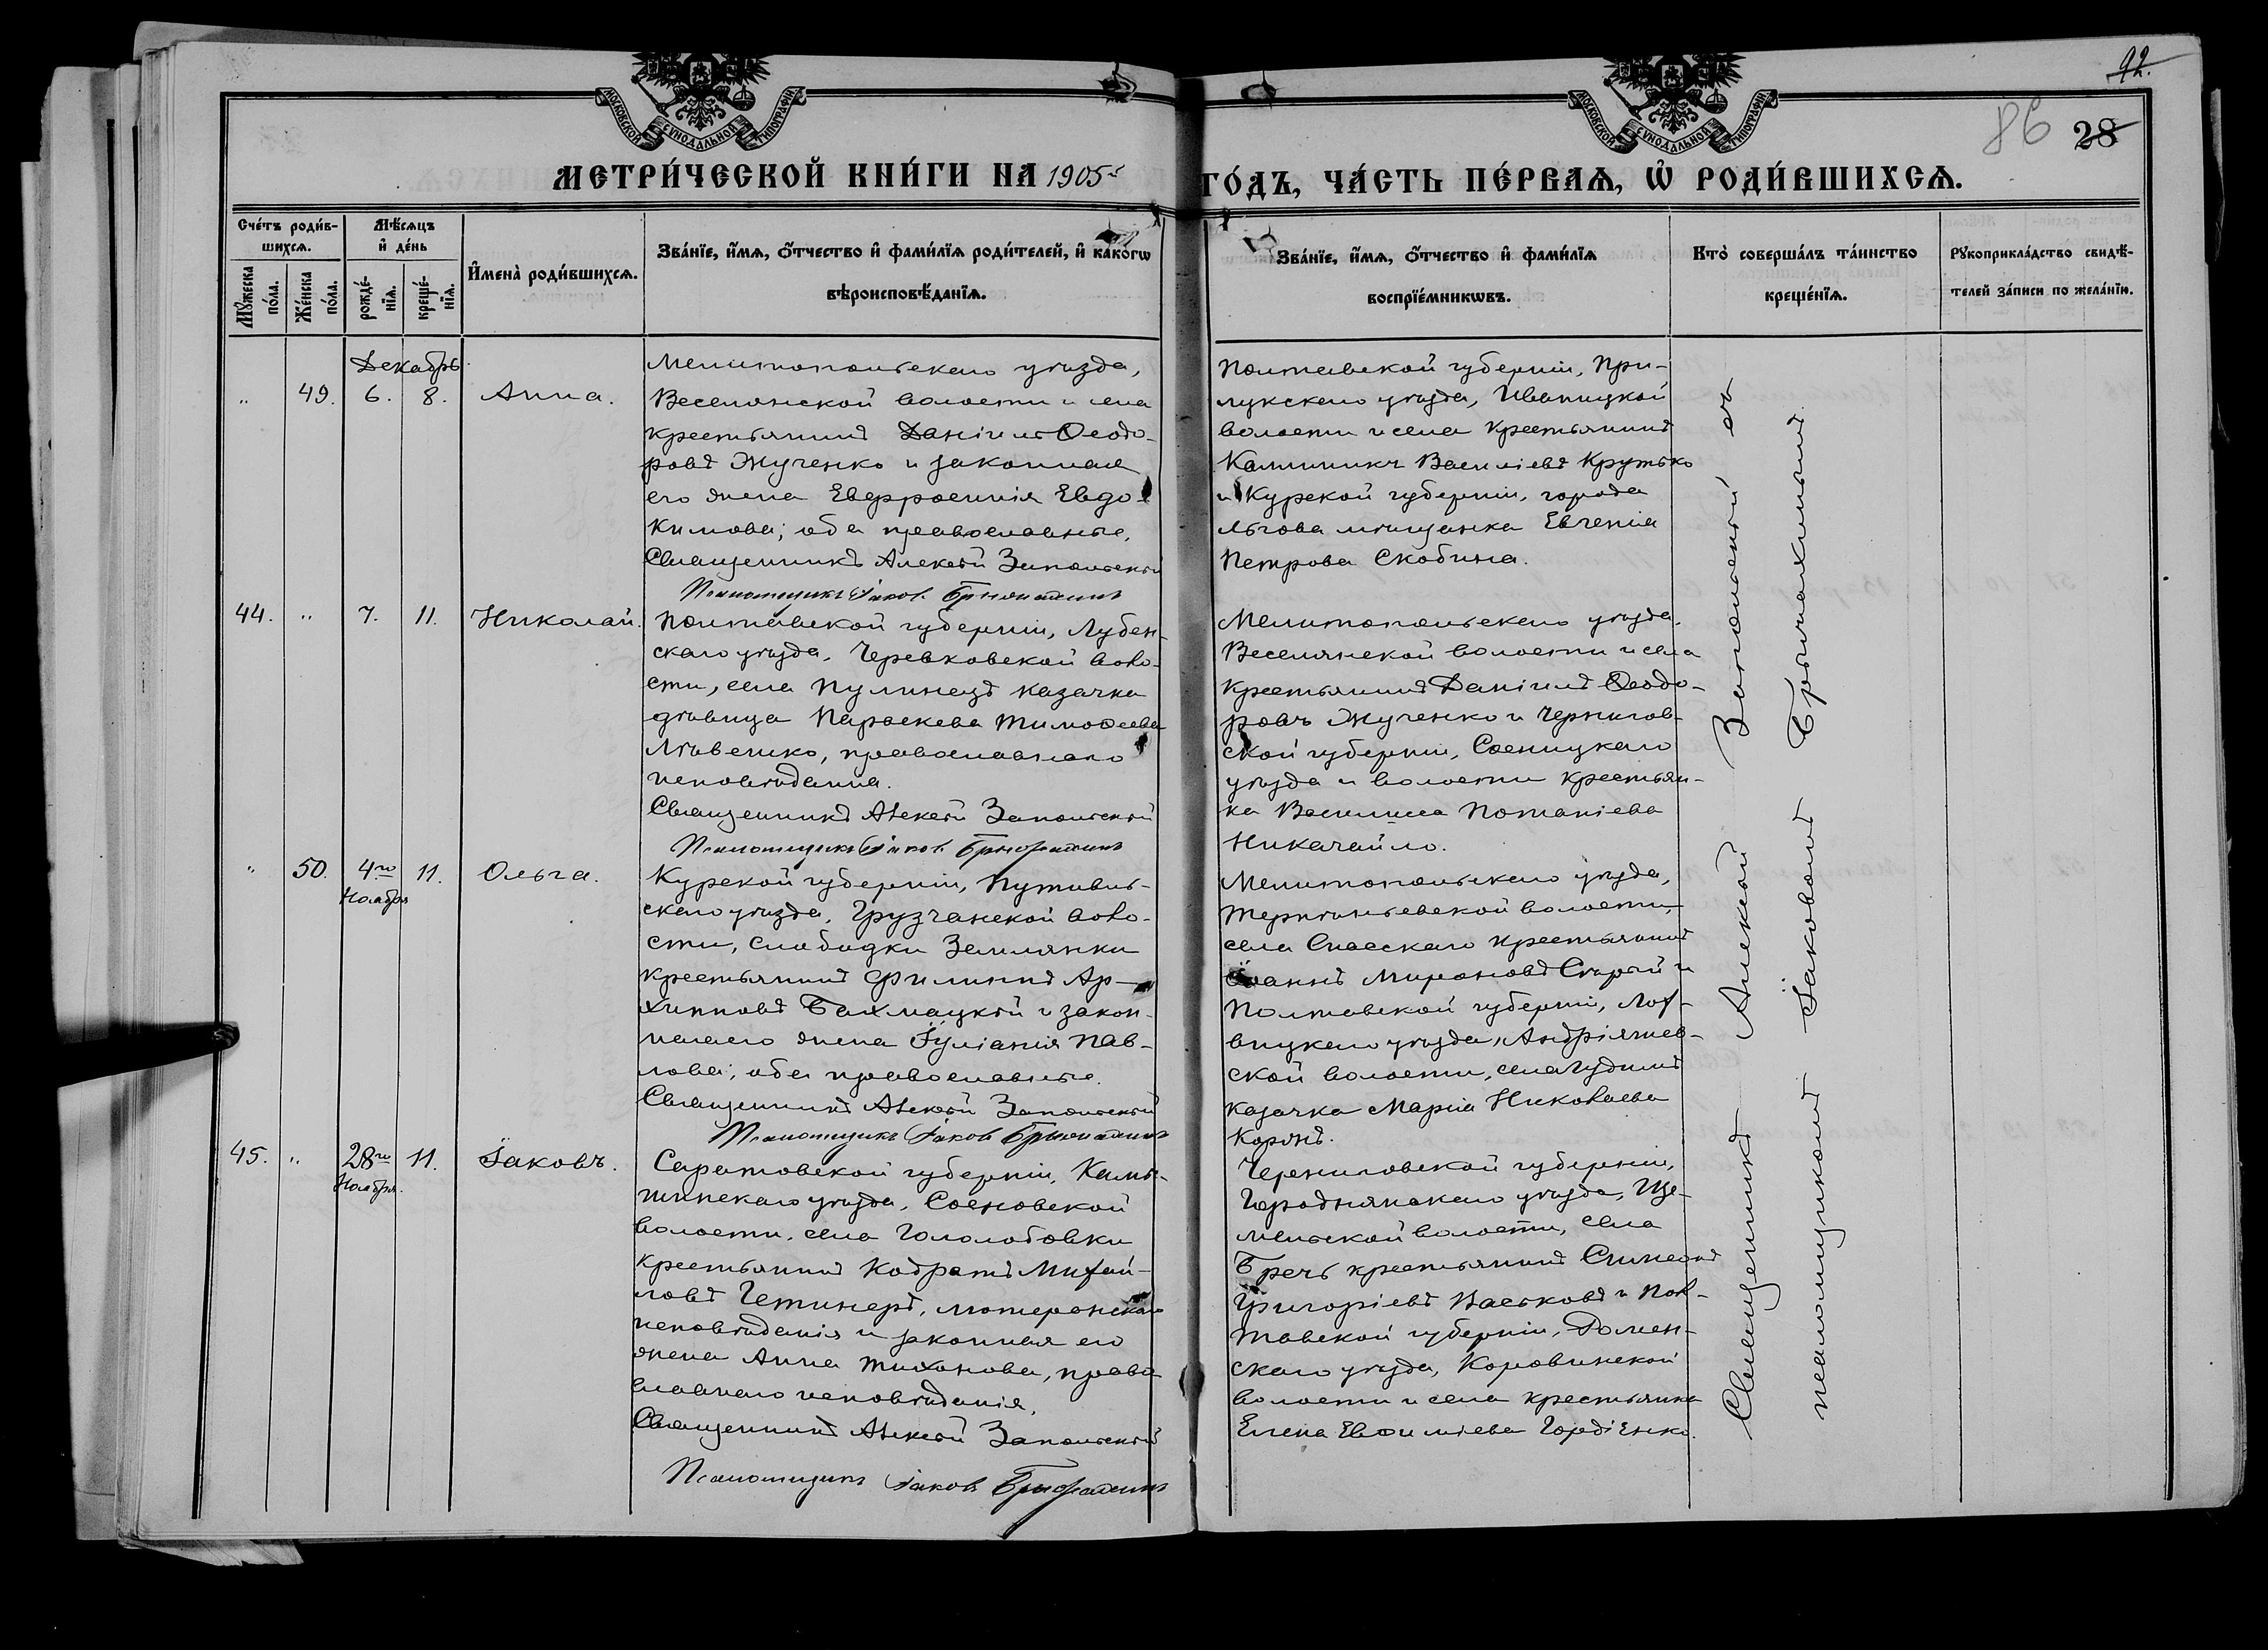 92.
86 28
МОСКОВСКОЙ СѴНОДАЛЬНОЙ ТИПОГРАФІИ
МОСКОВСКОЙ СѴНОДАЛЬНОЙ ТИПОГРАФІИ
МЕТРИ́ЧЕСКОЙ КНИ́ГИ НА 1905 ГО́ДЪ, ЧА́СТЬ ПЕ́РВАѦ, Ѽ РОДИ́ВШИХСѦ.
Сче́тъ роди́в-
шихсѧ.
Мꙋ́жеска по́ла.
Же́нска по́ла.
Мѣ́сѧцъ
и҆ де́нь
рожде́-
нїѧ.
креще́-
нїѧ.
И҆мена̀ роди́вшихсѧ.
Зва́нїе, и҆́мѧ, ѻ҆́тчество и҆ фами́лїѧ роди́телей, и҆ како́гѡ
вѣроисповѣ́данїѧ.
Зва́нїе, и҆́мѧ, ѻ҆́тчество и҆ фами́лїѧ
воспрїе́мникѡвъ.
Кто̀ соверша́лъ та́инство
креще́нїѧ.
Рꙋкоприкла́дство свидѣ́-
телей за́писи по жела́нїю.
Декабрь
" 49. 6. 8. Анна.
Мелитопольскаго уѣзда,
Веселянской волости и села
крестьянинъ Даніилъ Ѳеодо-
ровъ Жученко и законная
его жена Евфросинія Евдо-
кимова; оба православные.
Священникъ Алексѣй Запольскій
Псаломщикъ Іаковъ
Полтавской губерніи, При-
лукскаго уѣзда, Иваницкой
волости и села крестьянинъ
Каллиникъ Василіевъ Крутько
и Курской губерніи, города
Льгова мѣщанка Евгенія
Петрова Скобина.
44. " 7. 11. Николай.
Полтавской губерніи, Лубен-
скаго уѣзда, Черевковской воло-
сти, села Пулинецъ казачка
дѣвица Параскева Тимоѳеева
православнаго
исповѣданія.
Священникъ Алексѣй Запольскій
Псаломщикъ Іаковъ
Мелитопольскаго уѣзда.
Веселянской волости и села
крестьянинъ Даніилъ Ѳеодо-
ровъ Жученко и Чернигов-
ской губерніи, Сосницкаго
уѣзда и волости крестьян-
ка Василиса Потапіева
Никачайло.
" 50. 4го 11. Ольга.
Ноября
Курской губерніи, Путивль-
скаго уѣзда, Грузчанской воло-
сти, слободки Землянки
крестьянинъ Филиппъ Ар-
хипповъ Бахмацкій и закон-
ная его жена Іуліанія Пав-
лова; оба православные.
Священникъ Алексѣй Запольскій
Псаломщикъ Іаковъ
Мелитопольскаго уѣзда,
Терпѣньевской волости,
села Спасскаго крестьянинъ
Іоаннъ Мироновъ Сѣрый и
Полтавской губерніи, Лох-
вицкаго уѣзда, Андріяшев-
ской волости, села Гудимъ
казачка Марія Николаева
45. " 28го 11. Іаковъ.
Ноября.
Саратовской губерніи, Камы-
шинскаго уѣзда, Сосновской
волости, села Гололобовки
крестьянинъ Кодратъ Михай-
ловъ Гетингеръ, лютеранскаго
исповѣданія и законная его
жена Анна Тихонова, право-
славнаго исповѣданія.
Священникъ Алексѣй Запольскій
Псаломщикъ Іаковъ
Черниговской губерніи,
Городнянскаго уѣзда, Ще-
мельской волости, села
Бречь крестьянинъ Симеонъ
Григоріевъ Васьковъ и Пол-
тавской губерніи, Ромен-
скаго уѣзда, Коровинской
волости и села крестьянка
Елена Евѳиміева Гордіенко.
Священникъ Алексѣй Запольскій съ
псаломщикомъ Іаковомъ